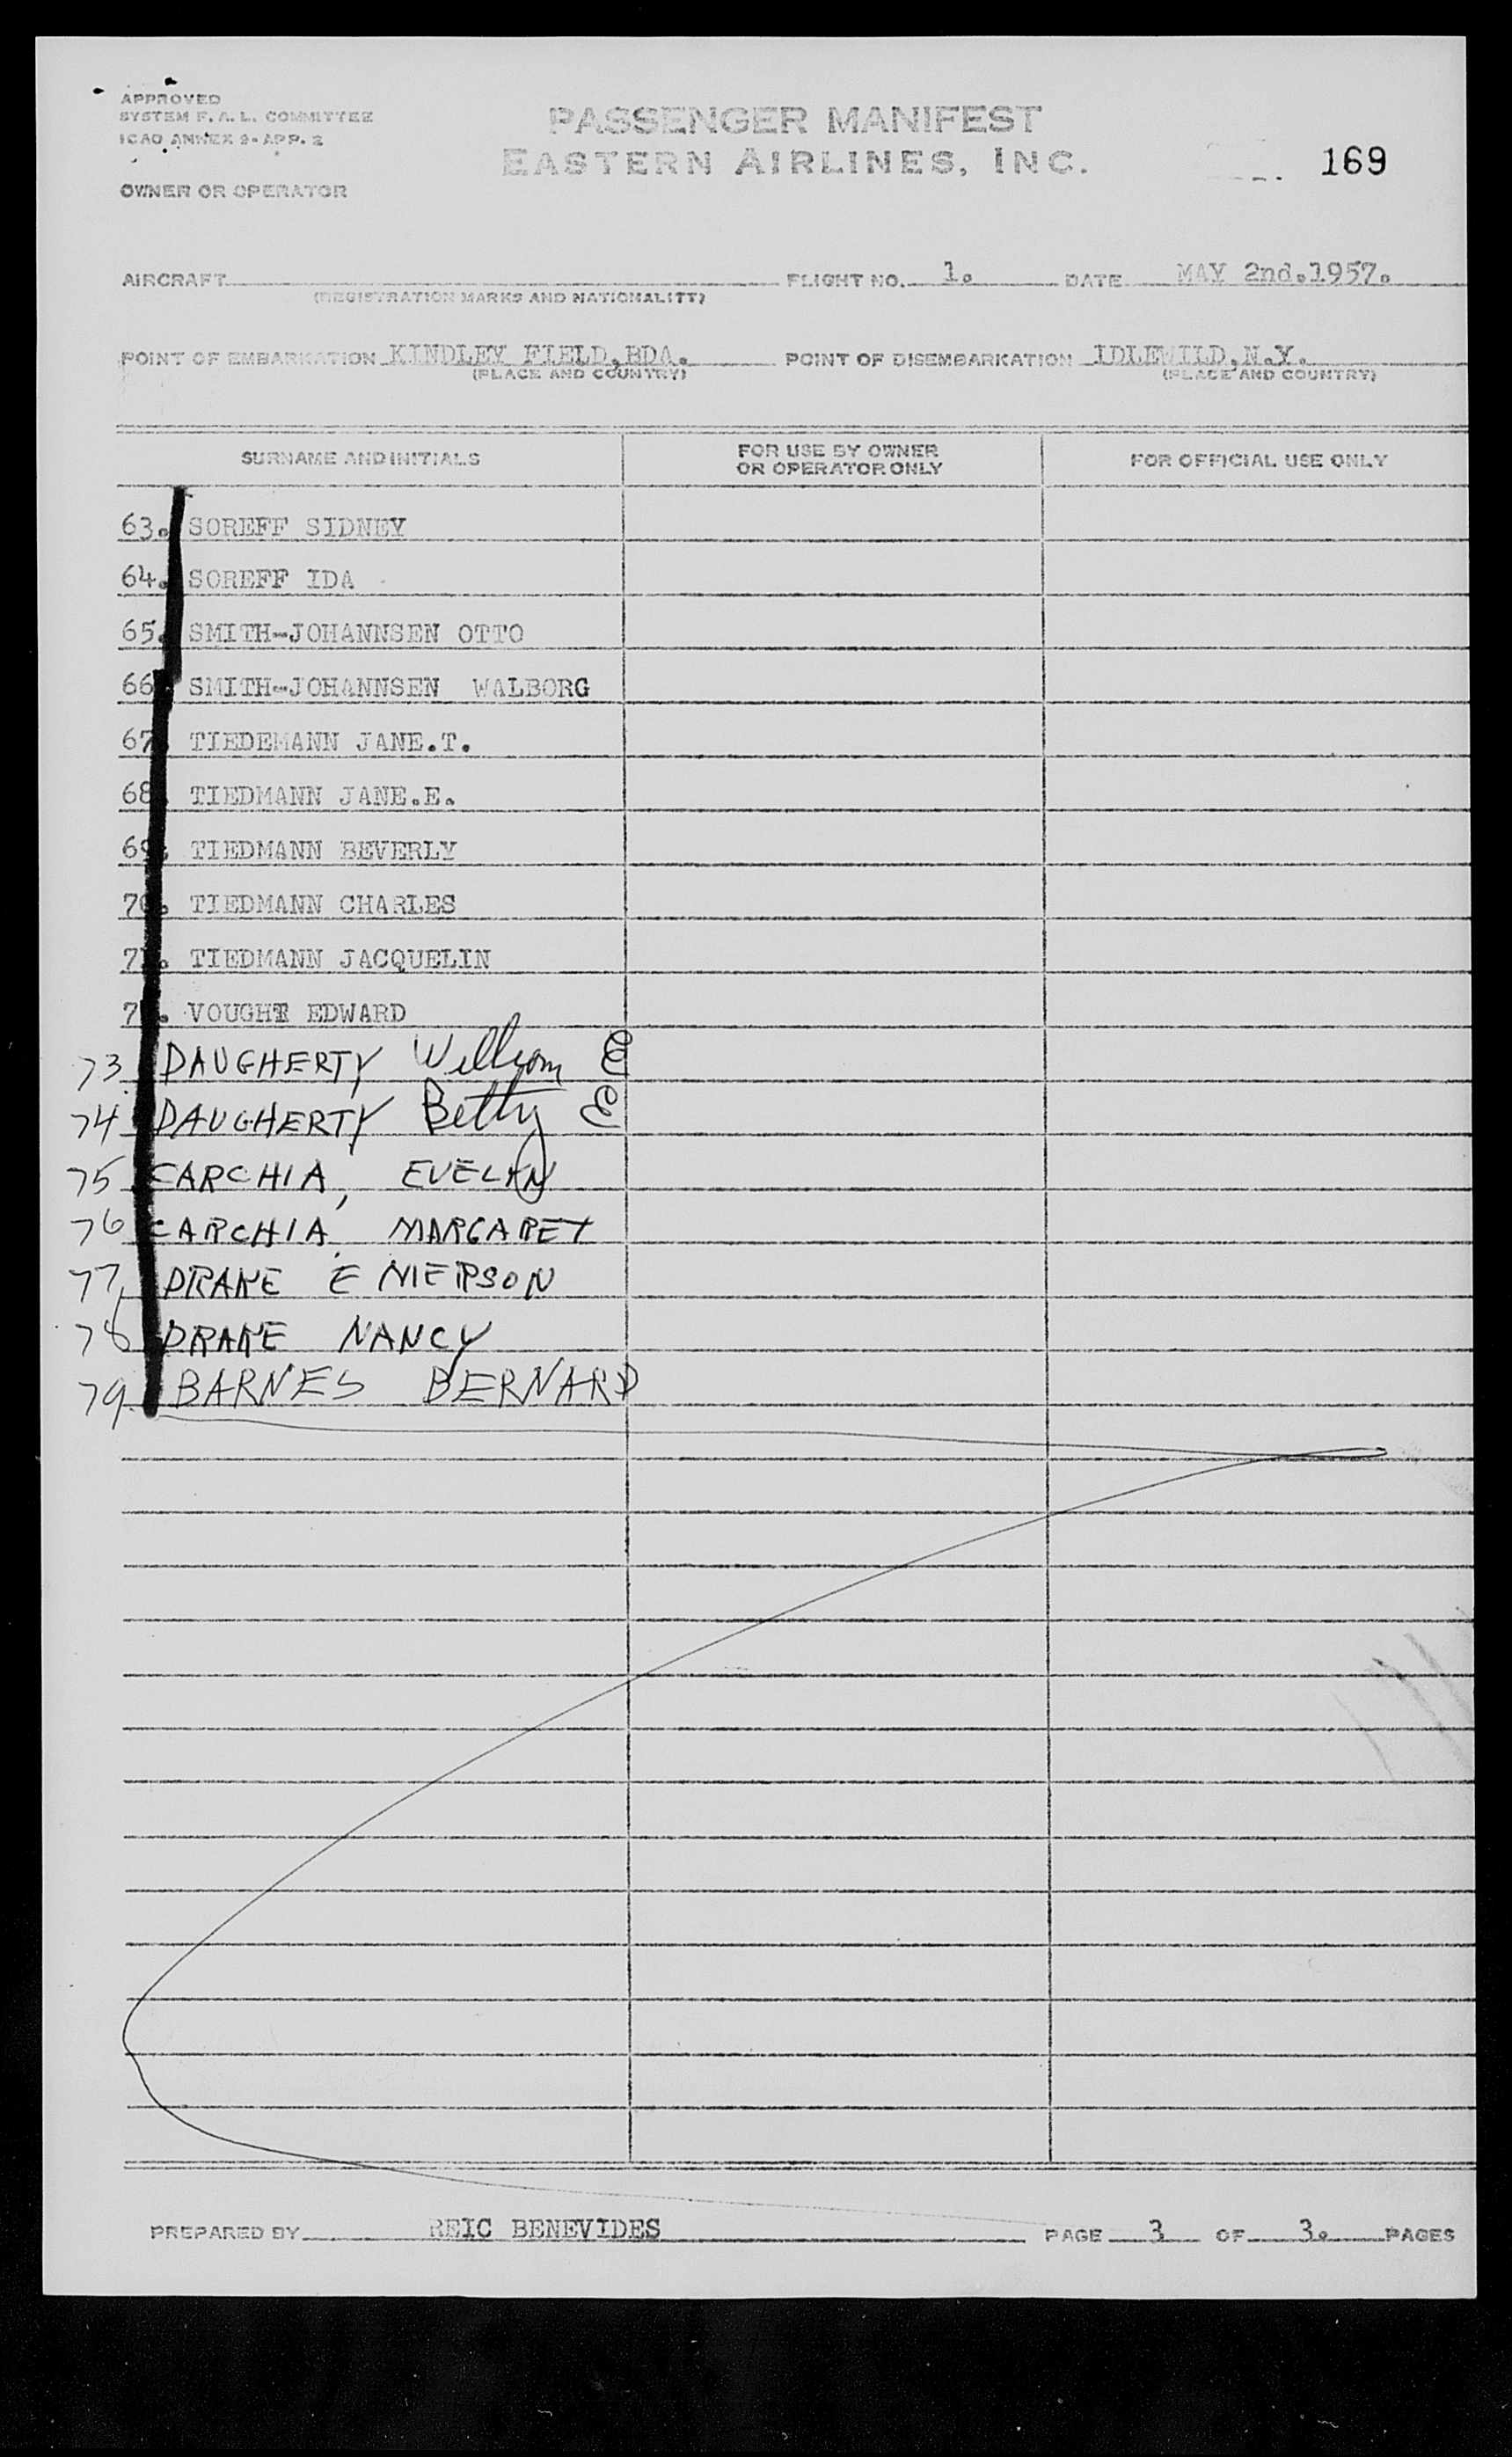 APPROVED
SYSTEM F. A. L. COMMITTEE
ICAO ANNEX 9 - APP. 2
OWNER OR OPERATOR
PASSENGER MANIFEST
EASTERN AIRLINES, INC.
169
AIRCRAFT FLIGHT NO. 1. DATE MAY 2nd.1957.
(REGISTRATION MARKS AND NATIONALITY)
POINT OF EMBARKATION KINDLEY FIELD,BDA. POINT OF DISEMBARKATION IDLEWILD,N.Y.
(PLACE AND COUNTRY) (PLACE AND COUNTRY)
SURNAME AND INITIALS FOR USE BY OWNER OR OPERATOR ONLY FOR OFFICIAL USE ONLY
63. SOREFF SIDNEY
64. SOREFF IDA
65. SMITH-JOHANNSEN OTTO
66. SMITH-JOHANNSEN WALBORG
67. TIEDEMANN JANE.T.
68. TIEDMANN JANE.E.
69. TIEDMANN BEVERLY
70. TIEDMANN CHARLES
71. TIEDMANN JACQUELIN
7. VOUGHT EDWARD
73. DAUGHERTY William E
74. DAUGHERTY Betty E
75 CARCHIA, EVELYN
76 CARCHIA, MARGARET
77. DRAKE EMERSON
78 DRAKE NANCY
79. BARNES BERNARD
PREPARED BY REIC BENEVIDES PAGE 3 OF 3. PAGES